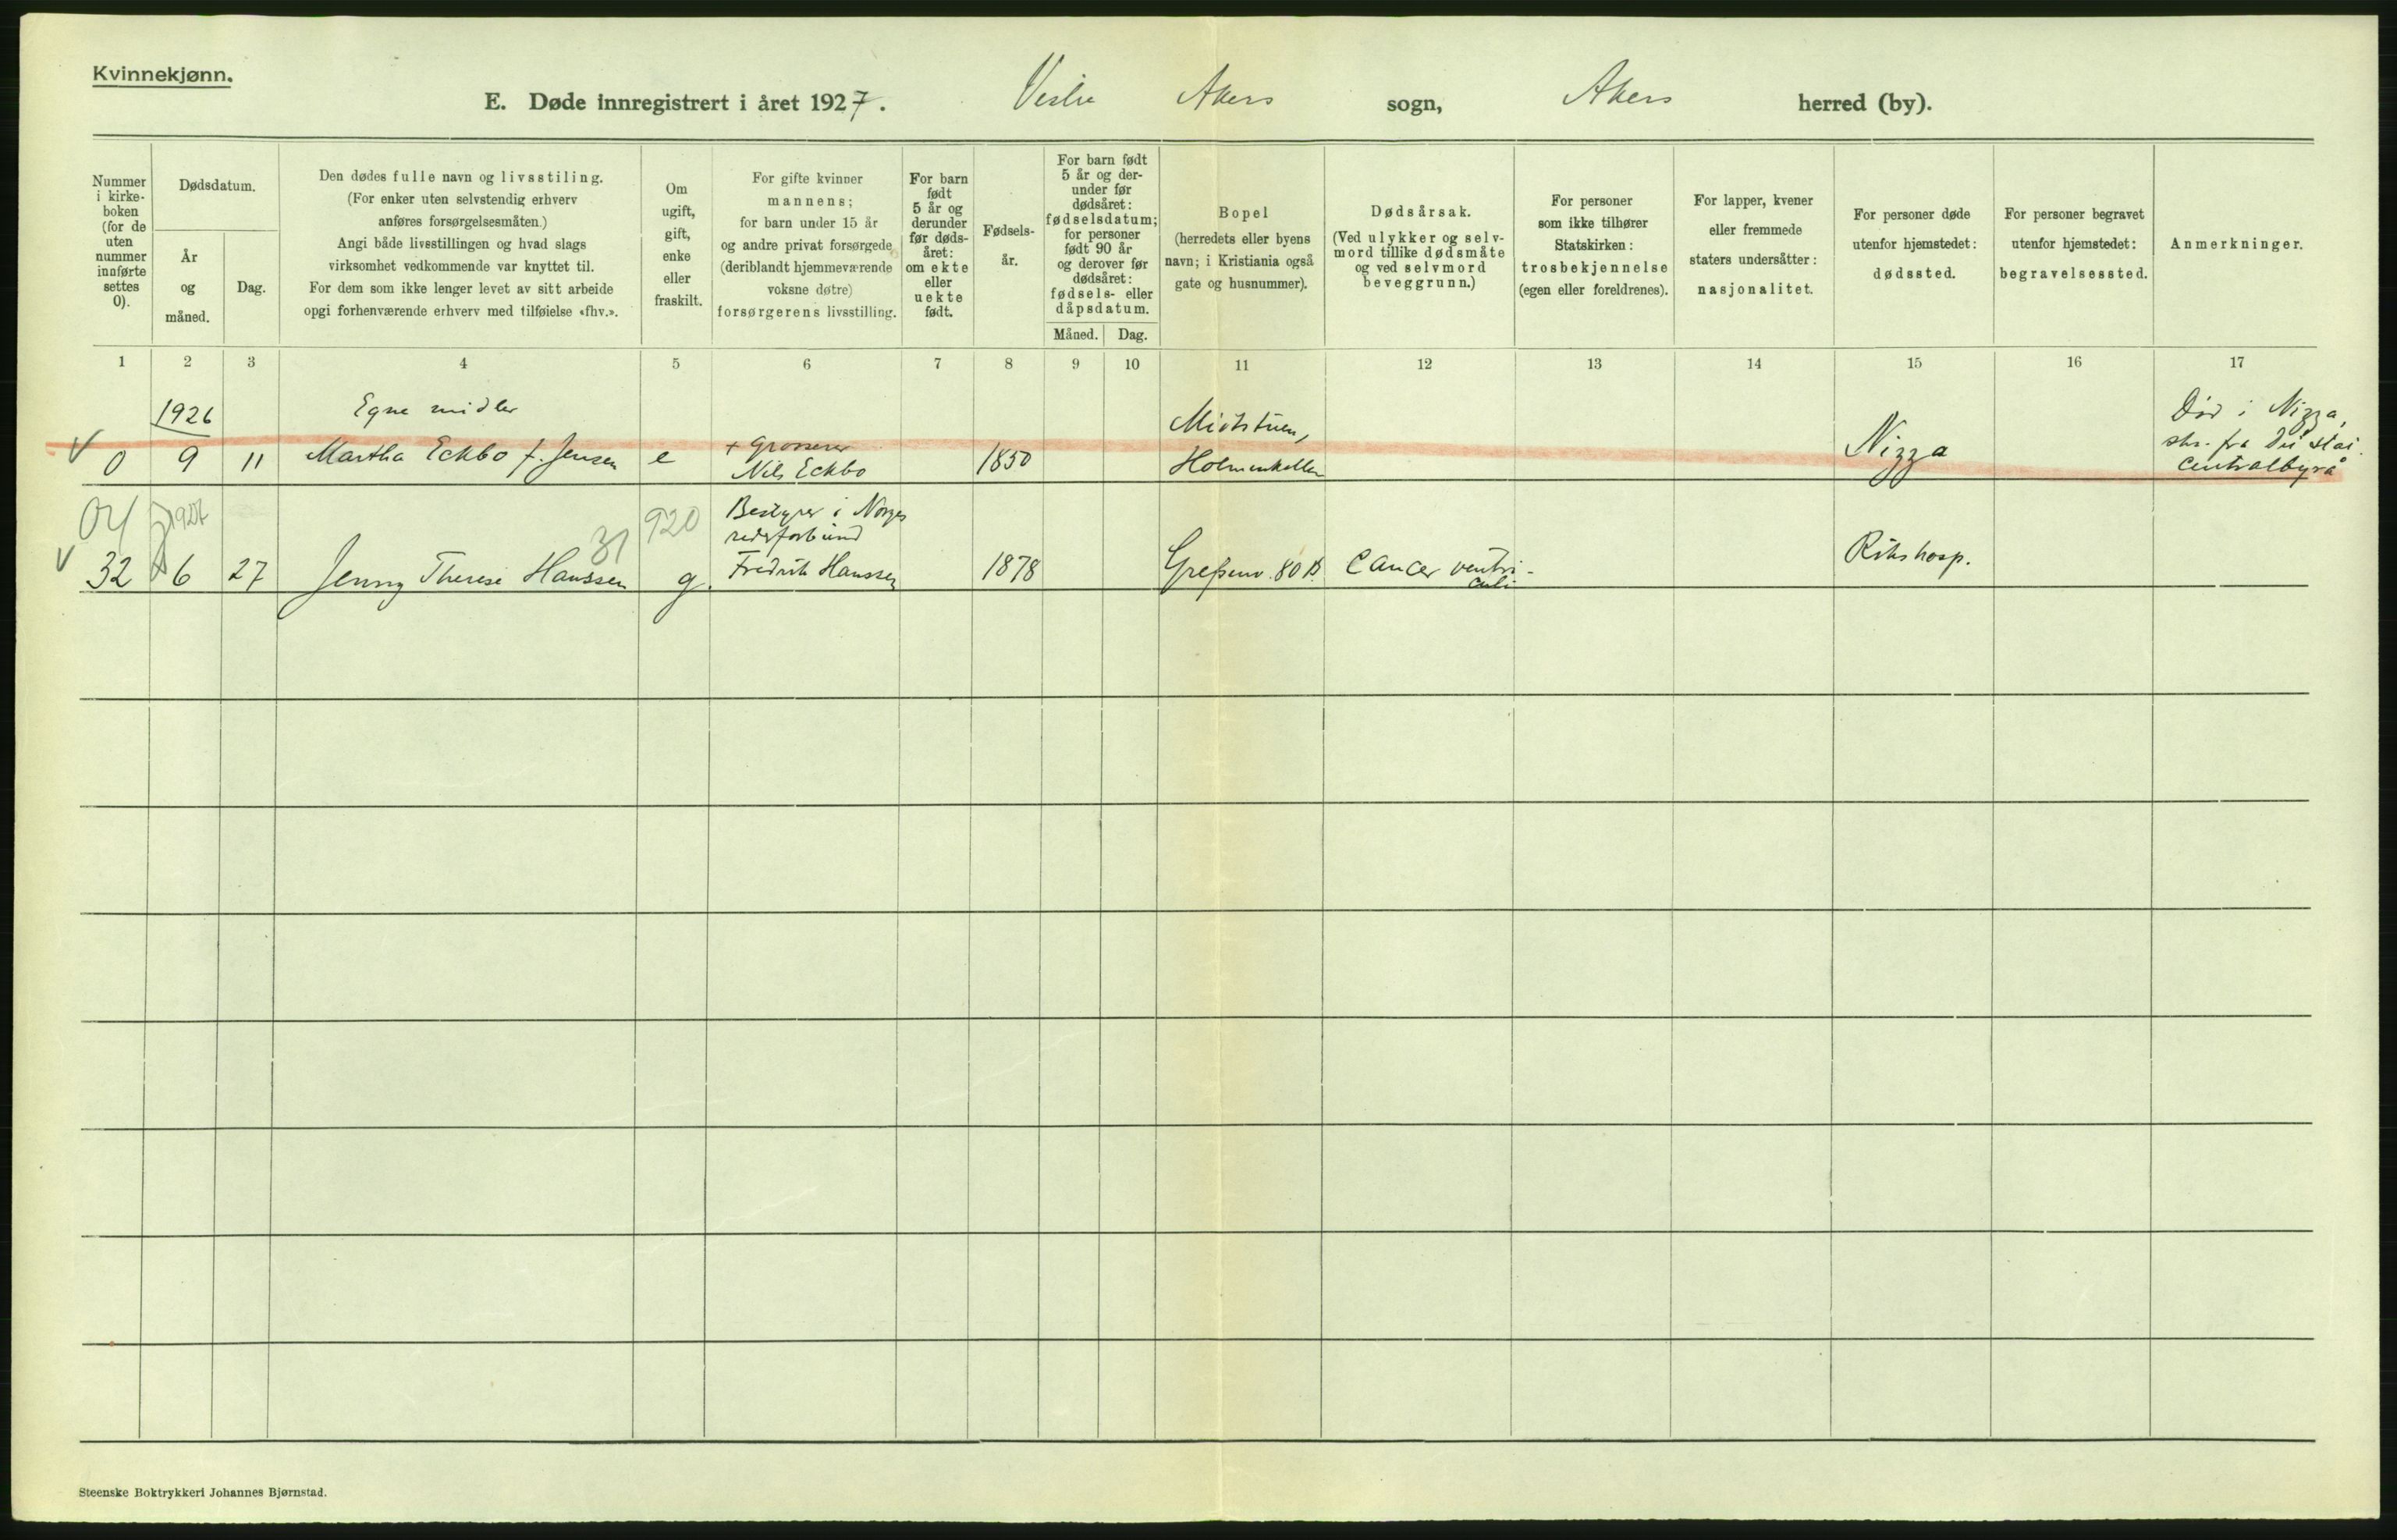 Kvinnekjønn.
E. Døde innregistrert i året 1927. Vestre Akers sogn, Akers herred (by).
Nummer
i kirke-
boken
(for de
uten
nummer
innførte
settes
0).
Dødsdatum.
År
og
måned.
Dag.
Den dødes fulle navn og livsstiling.
(For enker uten selvstendig erhverv
anføres forsørgelsesmåten.)
Angi både livsstillingen og hvad slags
virksomhet vedkommende var knyttet til.
For dem som ikke lenger levet av sitt arbeide
opgi forhenværende erhverv med tilføielse «fhv.».
Om
ugift,
gift,
enke
eller
fraskilt.
For gifte kvinner
mannens;
for barn under 15 år
og andre privat forsørgede
(deriblandt hjemmeværende
voksne døtre)
forsørgerens livsstilling.
For barn
født
5 år og
derunder
før døds-
året:
om ekte
eller
uekte
født.
Fødsels-
år.
For barn født
5 år og der-
under før
dødsåret:
fødselsdatum;
for personer
født 90 år
og derover før
dødsåret:
fødsels- eller
dåpsdatum.
Måned. Dag.
Bopel
(herredets eller byens
navn; i Kristiania også
gate og husnummer).
Dødsårsak.
(Ved ulykker og selv-
mord tillike dødsmåte
og ved selvmord
beveggrunn.)
For personer
som ikke tilhører
Statskirken:
trosbekjennelse
(egen eller foreldrenes).
For lapper, kvener
eller fremmede
staters undersåtter:
nasjonalitet.
For personer døde
utenfor hjemstedet:
dødssted.
For personer begravet
utenfor hjemstedet:
begravelsessted.
Anmerkninger.
1 2 3 4 5 6 7 8 9 10 11 12 13 14 15 16 17
1926 Egne midler
V 0 9 11 Martha Eckbo f. Jensen e
+ Grosserer
Nils Eckbo
1850
Midtstuen,
Holmenkollen
Nizza
Død i Nizza,
skr. fra Det stat.
Centralbyrå
04 1927 31 920
V 32 6 27 Jenny Therese Hanssen g.
Bestyrer i Norges
Fredrik Hanssen
1878
Grefsenv. 80 B
Cancer ventri-
culi
Rikshosp.
Steenske Boktrykkeri Johannes Bjørnstad.